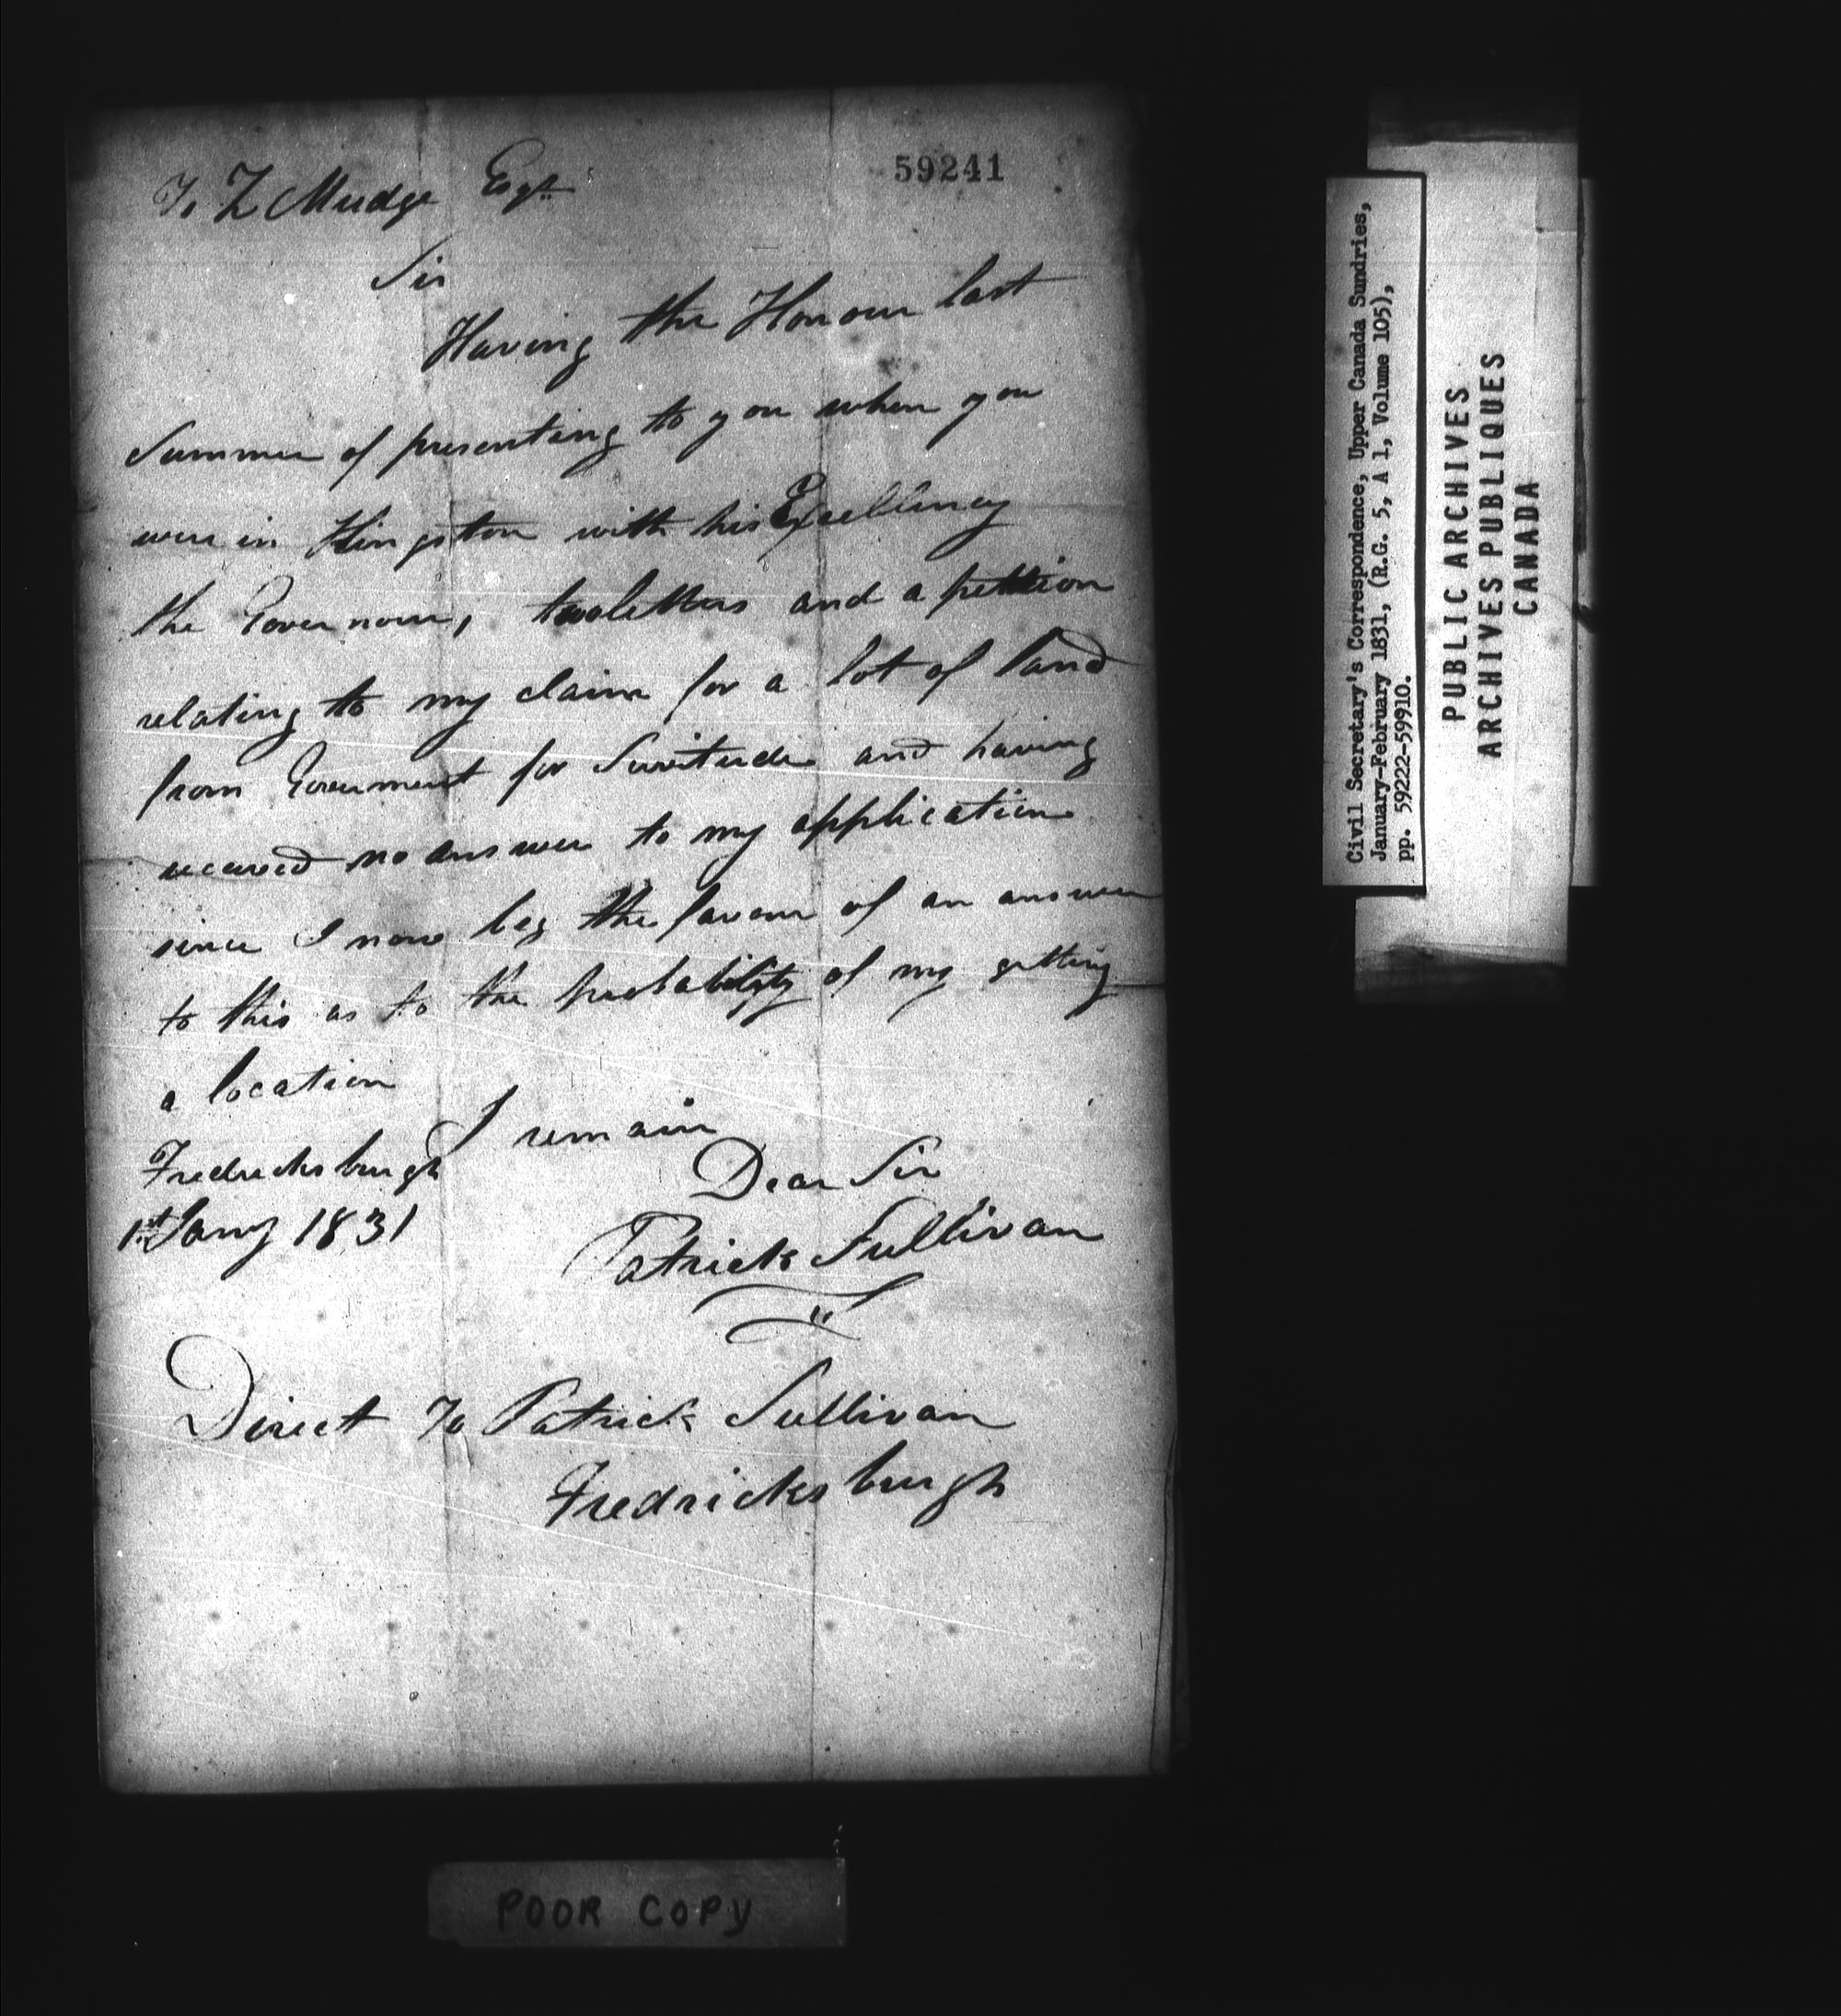 59241
To Z Mudge Esqr
Sir
Having the Honour last
Summer of presenting to you when you
were in Kingston with his Excellency
the Governour, two letters and a petition
relating to my claim for a lot of Land
from Goverment for Servitude and having
receved no answer to my application
since I now beg the favour of an answer
to this as to the probability of my getting
a location
I remain
Dear Sir
Patrick Sullivan
Fredricksburgh
1st Jany 1831
Direct To Patrick Sullivan
Fredricksburgh
Civil Secretary's Correspondence, Upper Canada Sundries,
January-February 1831, (R.G. 5, A 1, Volume 105),
pp. 59222-59910.
PUBLIC ARCHIVES
ARCHIVES PUBLIQUES
CANADA
POOR COPY